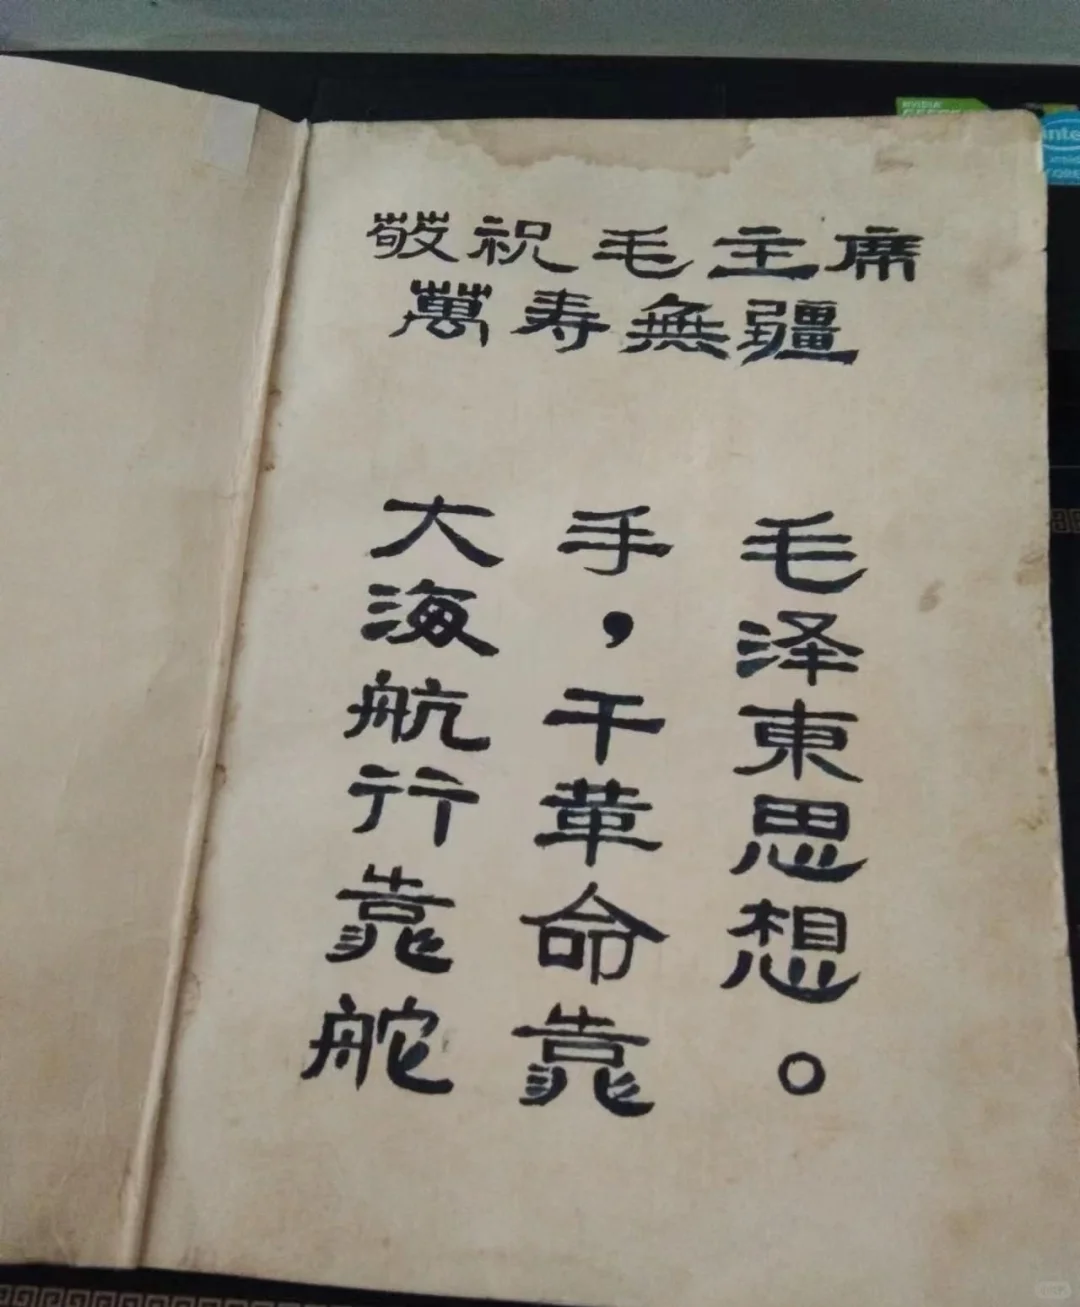 敬祝毛主席
萬寿無疆
大海航行靠舵
手，干革命靠
毛泽東思想。
NVIDIA
inte
inside
CORE